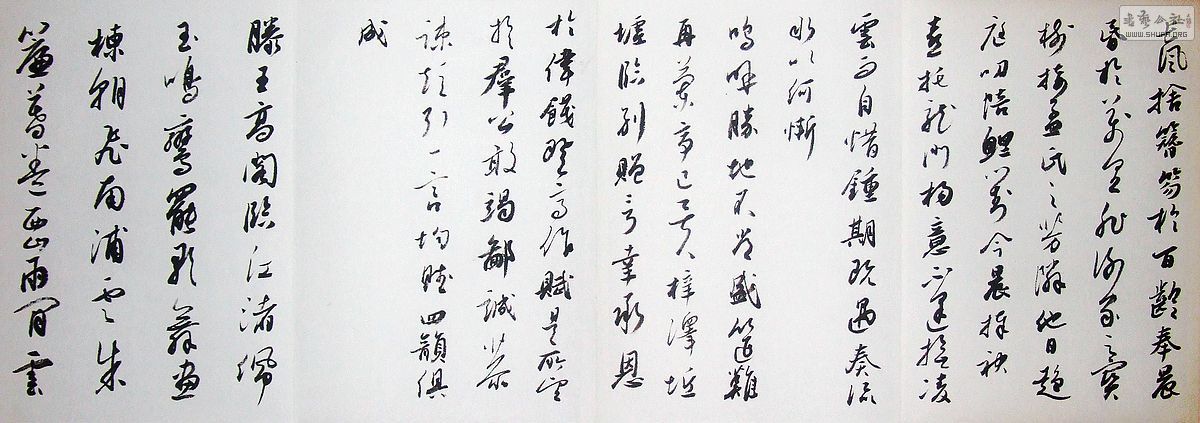 風捨簪笏於百齡奉晨
昏於萬里非謝家之寶
樹接孟氏之芳隣他日趨
庭叨陪鯉對今晨捧袂
喜托龍門楊意不逢撫凌
雲而自惜鍾期既遇奏流
水以何慚
嗚呼勝地不常盛筵難
再蘭亭已矣梓澤坵
墟臨別贈言幸承恩
於偉餞登高作賦是所望
於羣公敢竭鄙誠恭
疎短引一言均賦四韻俱
成
滕王高閣臨江渚佩
玉鳴鸞罷歌舞畫
棟朝飛南浦雲朱
簾暮卷西山雨間雲
書藝公社
WWW.SHUFA.ORG